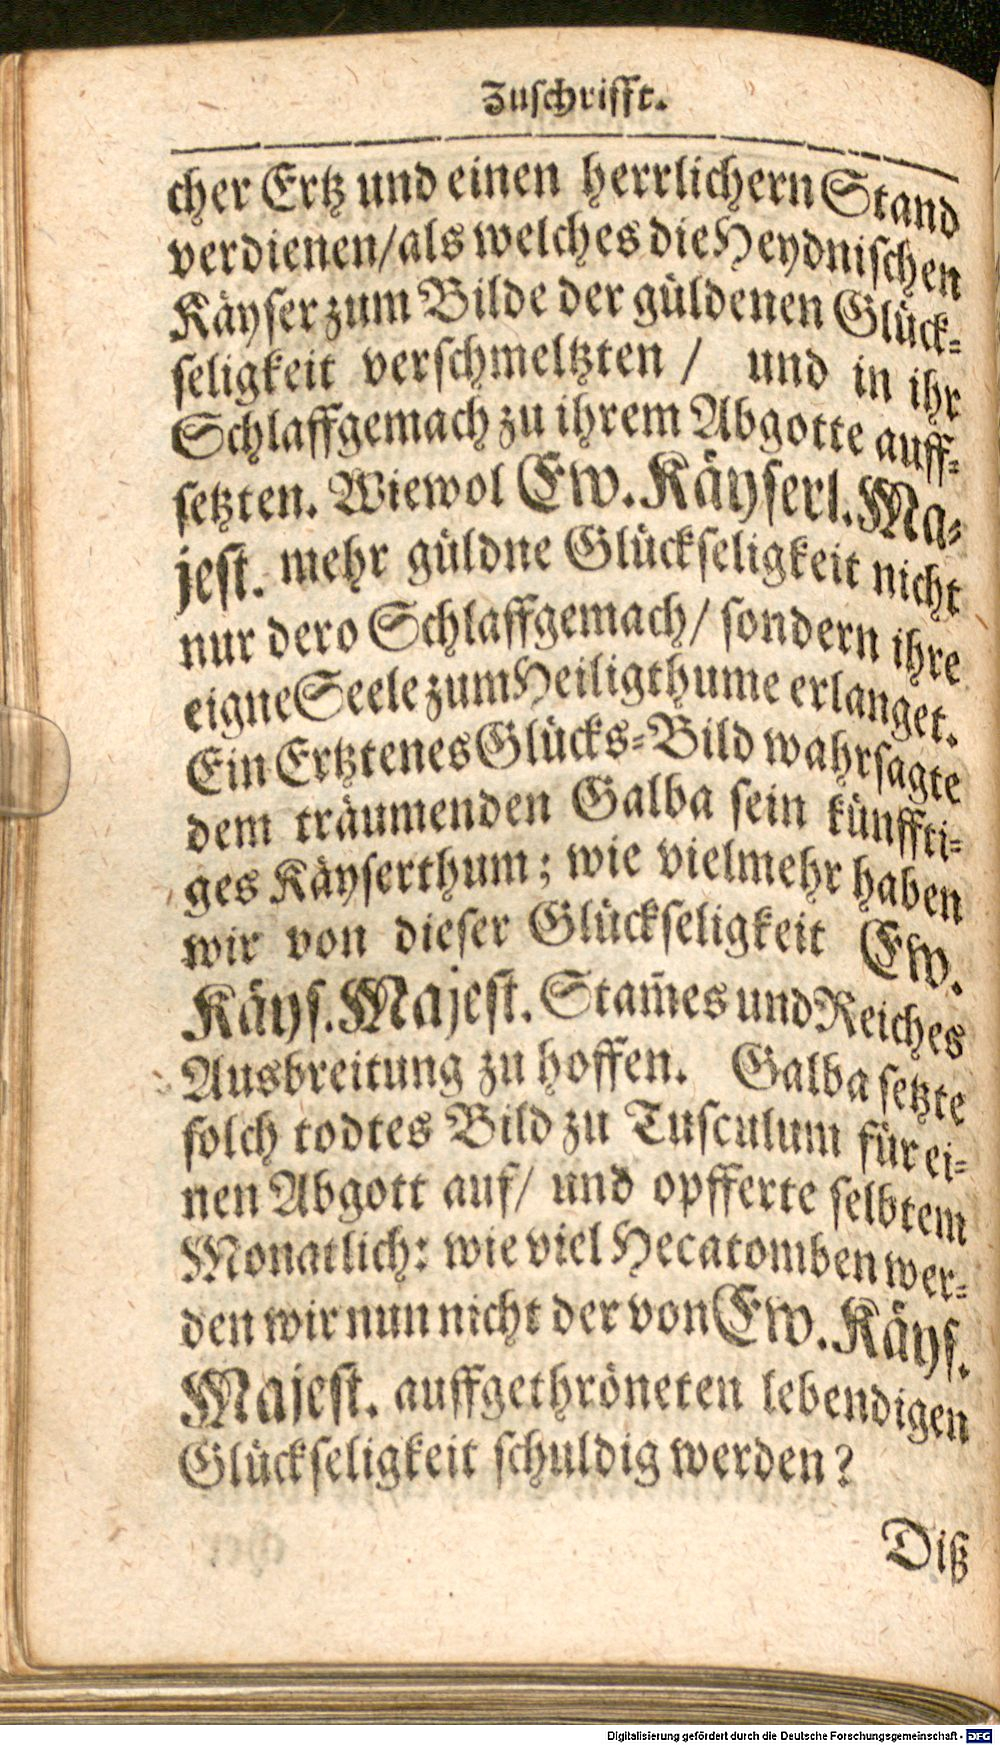 Zuschrifft.
cher Ertz und einen herrlichern Stand
verdienen/als welches die Heydnischen
Käyser zum Bilde der güldenen Glück-
seligkeit verschmeltzten / und in ihr
Schlaffgemach zu ihrem Abgotte auff-
setzten. Wiewol Ew. Käyserl. Ma-
jest. mehr güldne Glückseligkeit nicht
nur dero Schlaffgemach/ sondern ihre
eigne Seele zum Heiligthume erlanget.
Ein Ertztenes Glücks-Bild wahrsagte
dem träumenden Galba sein künffti-
ges Käyserthum; wie vielmehr haben
wir von dieser Glückseligkeit Ew.
Käys. Majest. Stam̃es und Reiches
Ausbreitung zu hoffen. Galba setzte
solch todtes Bild zu Tusculum für ei-
nen Abgott auf/ und opfferte selbtem
Monatlich: wie viel Hecatomben wer-
den wir nun nicht der von Ew. Käys.
Majest. auffgethröneten lebendigen
Glückseligkeit schuldig werden?
Diß
Digitalisierung gefördert durch die Deutsche Forschungsgemeinschaft - DFG